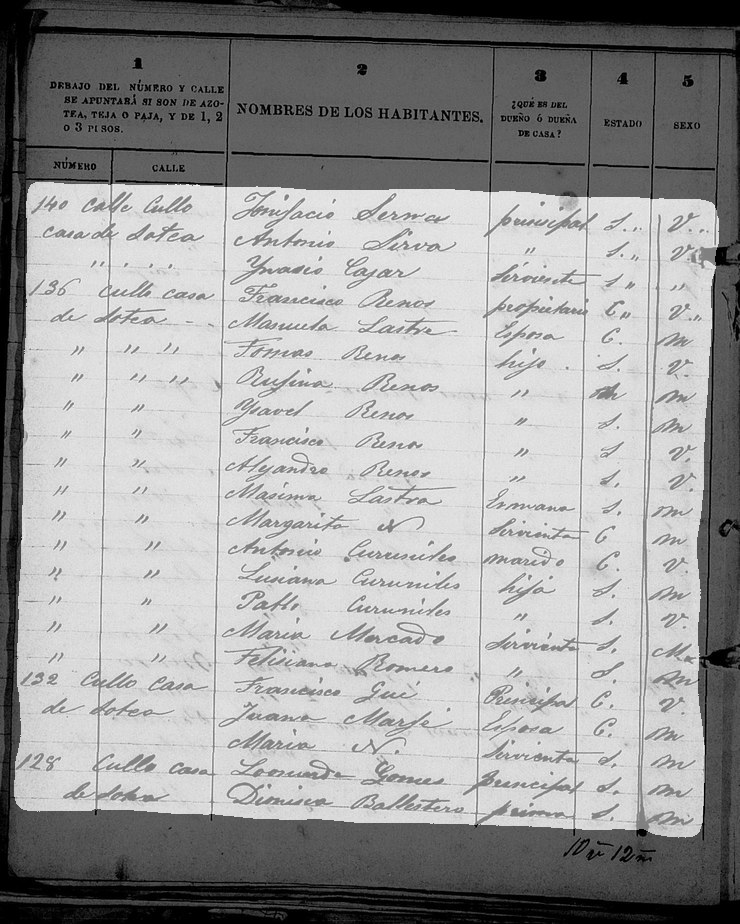 1 2 3 4 5
DEBAJO DEL NÚMERO Y CALLE
SE APUNTARÁ SI SON DE AZO-
TEA, TEJA O PAJA, Y DE 1, 2
O 3 PISOS.
NOMBRES DE LOS HABITANTES.
¿QUÉ ES DEL
DUEÑO Ó DUEÑA
DE CASA?
ESTADO
SEXO
NÚMERO CALLE
140 calle Cullo Bonifacio Serna principal S. „ V. „
casa de Sotea Antonio Sirva „ S. „ V.
„ „ „ „ Ynasio Cajar Sirviente S „ „
136 Cullo casa Francisco Renos propietario C „ V. „
de Sotea - - Manuela Lastra Esposa C. m
„ „ „ Tomas Renos hijo . S. V.
„ „ „ Rufina Renos „ m
„ „ Ysavel Renos „ S. m
„ „ Francisco Renos „ S V.
„ „ Alejandro Renos „ S. V.
„ „ Masima Lastra Ermana S. m
„ „ Margarita N Sirvienta C m
„ „ Antonio Curuniles marido C. V.
„ „ Lusiana Curuniles hija S. m
„ „ Pablo Curuniles „ S. V.
„ „ Maria Mercado Sirvienta S. M
„ „ Felisiana Romero „ S. m
132 Cullo Casa Francisco Gué Principal C. V.
de Sotea Juana Marfé Esposa C. m
Maria N. Sirvienta S. m
128 Cullo casa Leonarda Gomes principal S. m
de Sotea Dionisia Ballestero prima S. m
10 v 12 m